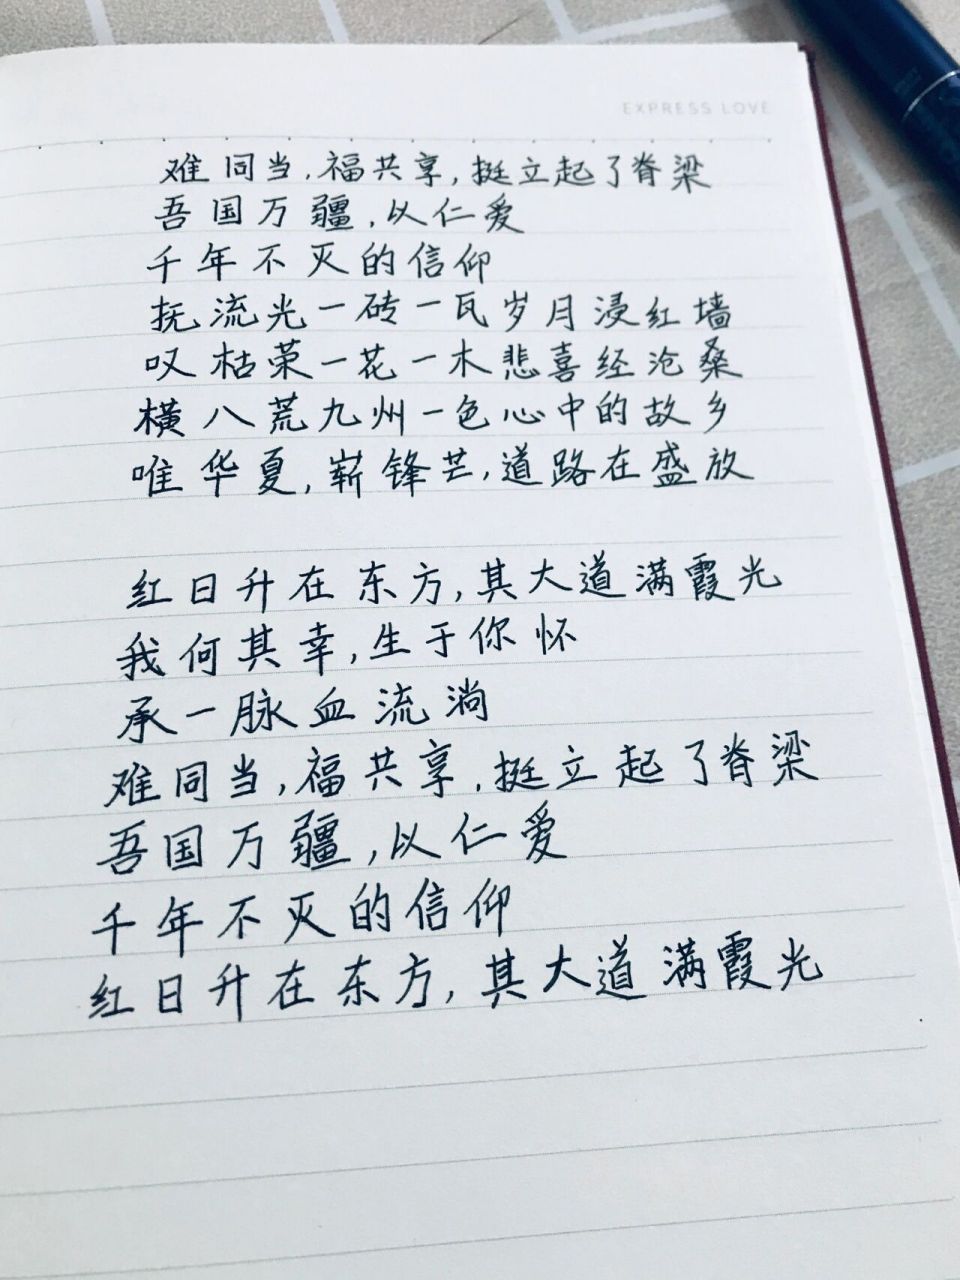 EXPRESS LOVE
难同当,福共享,挺立起了脊梁
吾国万疆,以仁爱
千年不灭的信仰
抚流光一砖一瓦岁月浸红墙
叹枯荣一花一木悲喜经沧桑
横八荒九州一色心中的故乡
唯华夏,崭锋芒,道路在盛放
红日升在东方,其大道满霞光
我何其幸,生于你怀
承一脉血流淌
难同当,福共享,挺立起了脊梁
吾国万疆,以仁爱
千年不灭的信仰
红日升在东方,其大道满霞光